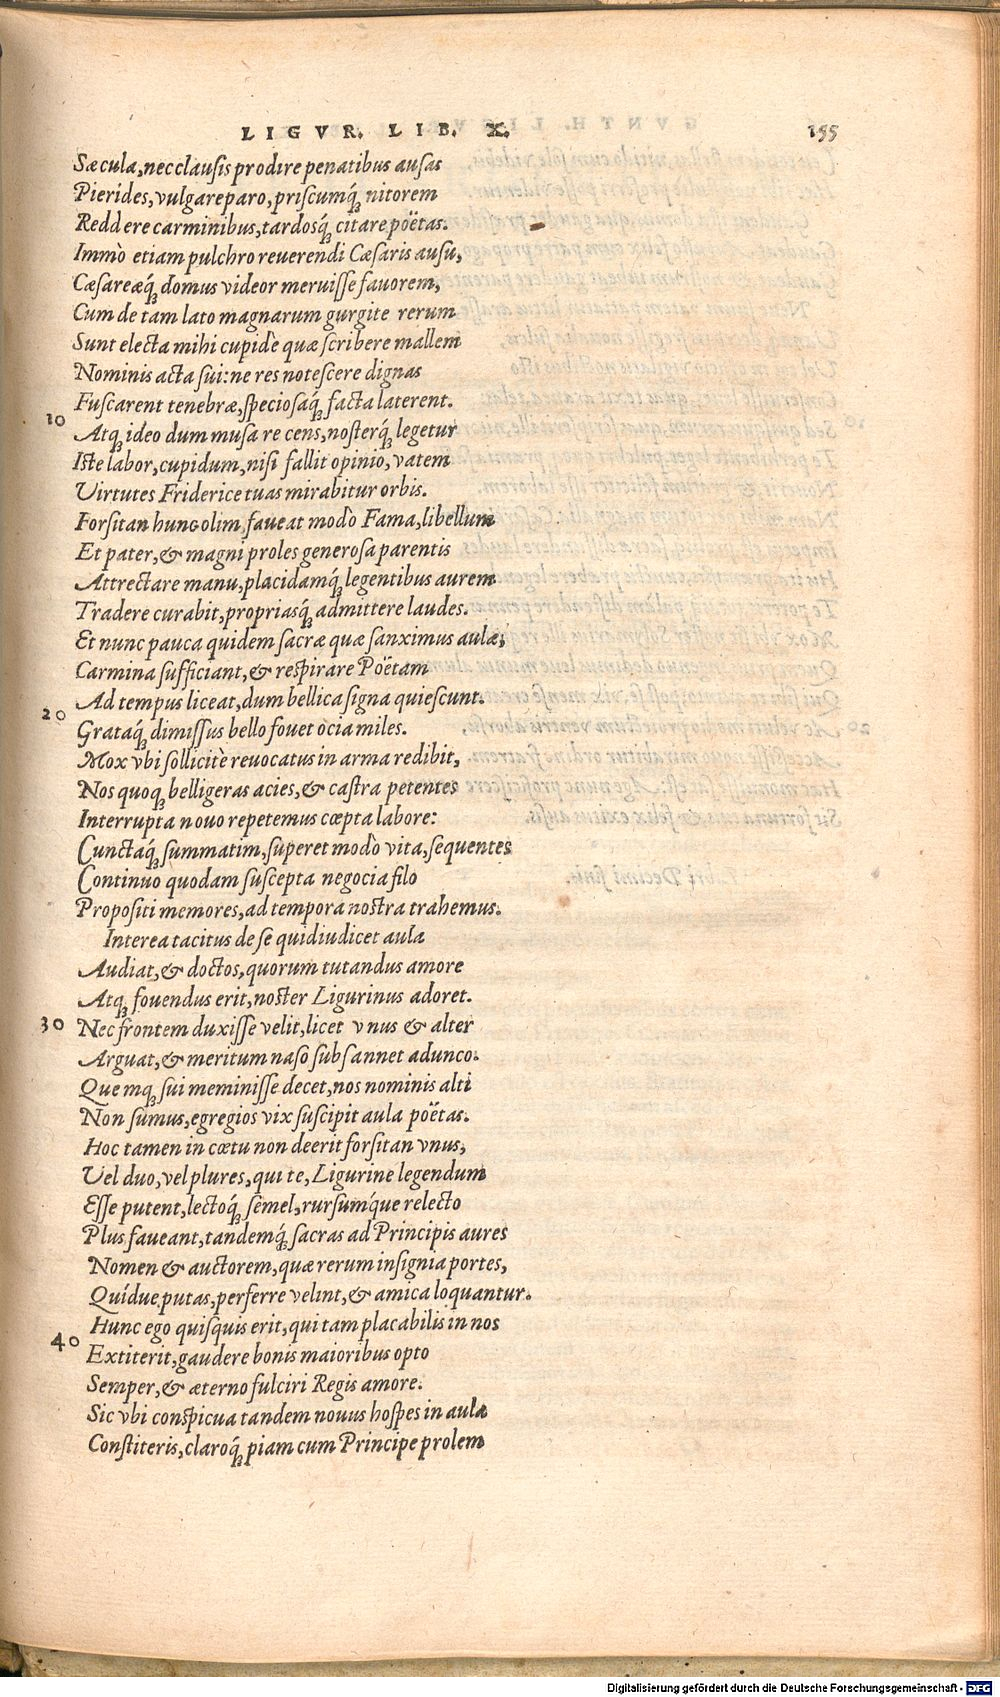 LIGVR. LIB. X. 155
Sæcula, nec clausis prodire penatibus ausas
Pierides, vulgare paro, priscumq́; nitorem
Reddere carminibus, tardosq́; citare poëtas.
Immò etiam pulchro reuerendi Cæsaris ausu,
Cæsareæq́; domus videor meruisse fauorem,
Cum de tam lato magnarum gurgite rerum
Sunt electa mihi cupidè quæ scribere mallem
Nominis acta sui: ne res notescere dignas
Fuscarent tenebræ, speciosaq́; facta laterent.
10 Atq; ideo dum musa recens, nosterq́; legetur
Iste labor, cupidum, nisi fallit opinio, vatem
Virtutes Friderice tuas mirabitur orbis.
Forsitan hunc olim, faueat modò Fama, libellum
Et pater, & magni proles generosa parentis
Attrectare manu, placidamq́; legentibus aurem
Tradere curabit, propriasq́; admittere laudes.
Et nunc pauca quidem sacræ quæ sanximus aulæ,
Carmina sufficiant, & respirare Poëtam
Ad tempus liceat, dum bellica signa quiescunt.
20 Grataq́; dimissus bello fouet ocia miles.
Mox vbi sollicitè reuocatus in arma redibit,
Nos quoq; belligeras acies, & castra petentes
Interrupta nouo repetemus cœpta labore:
Cunctaq́; summatim, superet modò vita, sequentes
Continuo quodam suscepta negocia filo
Propositi memores, ad tempora nostra trahemus.
Interea tacitus de se quid iudicet aula
Audiat, & doctos, quorum tutandus amore
Atq; fouendus erit, noster Ligurinus adoret.
30 Nec frontem duxisse velit, licet vnus & alter
Arguat, & meritum naso subsannet adunco.
Quemq; sui meminisse decet, nos nominis alti
Non sumus, egregios vix suscipit aula poëtas.
Hoc tamen in cœtu non deerit forsitan vnus,
Vel duo, vel plures, qui te, Ligurine legendum
Esse putent, lectoq́; semel, rursumq́ue relecto
Plus faueant, tandemq́; sacras ad Principis aures
Nomen & auctorem, quæ rerum insignia portes,
Quidue putas, perferre velint, & amica loquantur.
Hunc ego quisquis erit, qui tam placabilis in nos
40 Extiterit, gaudere bonis maioribus opto
Semper, & æterno fulciri Regis amore.
Sic vbi conspicua tandem nouus hospes in aula
Constiteris, claroq́; piam cum Principe prolem
Digitalisierung gefördert durch die Deutsche Forschungsgemeinschaft - DFG